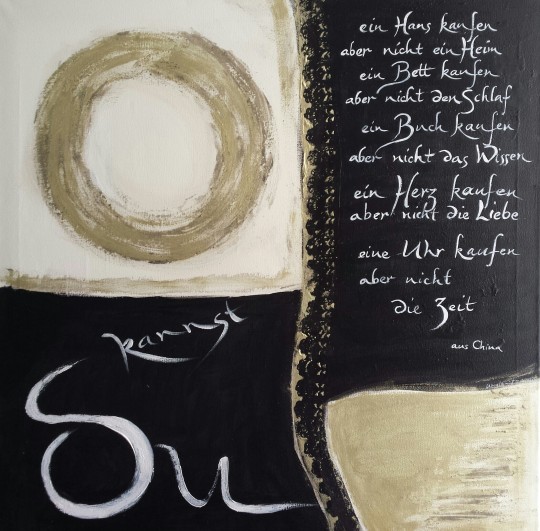 ein Haus kaufen
aber nicht ein Heim
ein Bett kaufen
aber nicht den Schlaf
ein Buch kaufen
aber nicht das Wissen
ein Herz kaufen
aber nicht die Liebe
eine Uhr kaufen
aber nicht
die Zeit
aus China
kannst
Du